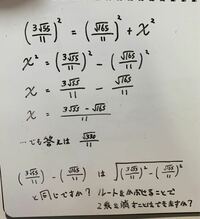 (3√55/11)² = (√165/11)² + x²
x² = (3√55/11)² - (√165/11)²
x = 3√55/11 - √165/11
x = 3√55-√165/11
…でも答えは √330/11
(3√55/11) - (√165/11) は √(3√55/11)² - (√165/11)²
と同じですか? ルートをかぶせることで
2乗を消すことはできますか?